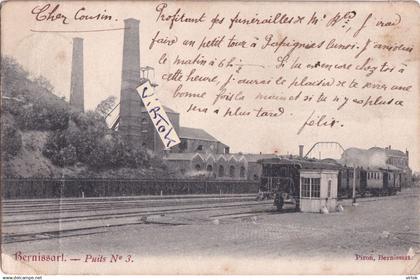 Cher Cousin,
Profitant des funérailles de Mr Bte J'irai
faire un petit tour à Papignies lundi. J'arriverai
le matin à 6½ h. Si tu es encore chez toi à
cette heure, j'aurai le plaisir de te serrer une
bonne fois la main et si tu n'y es plus ce
sera à plus tard.
félix
VITOKI.COM
Bernissart. — Puits No 3.
Piron, Bernissart.